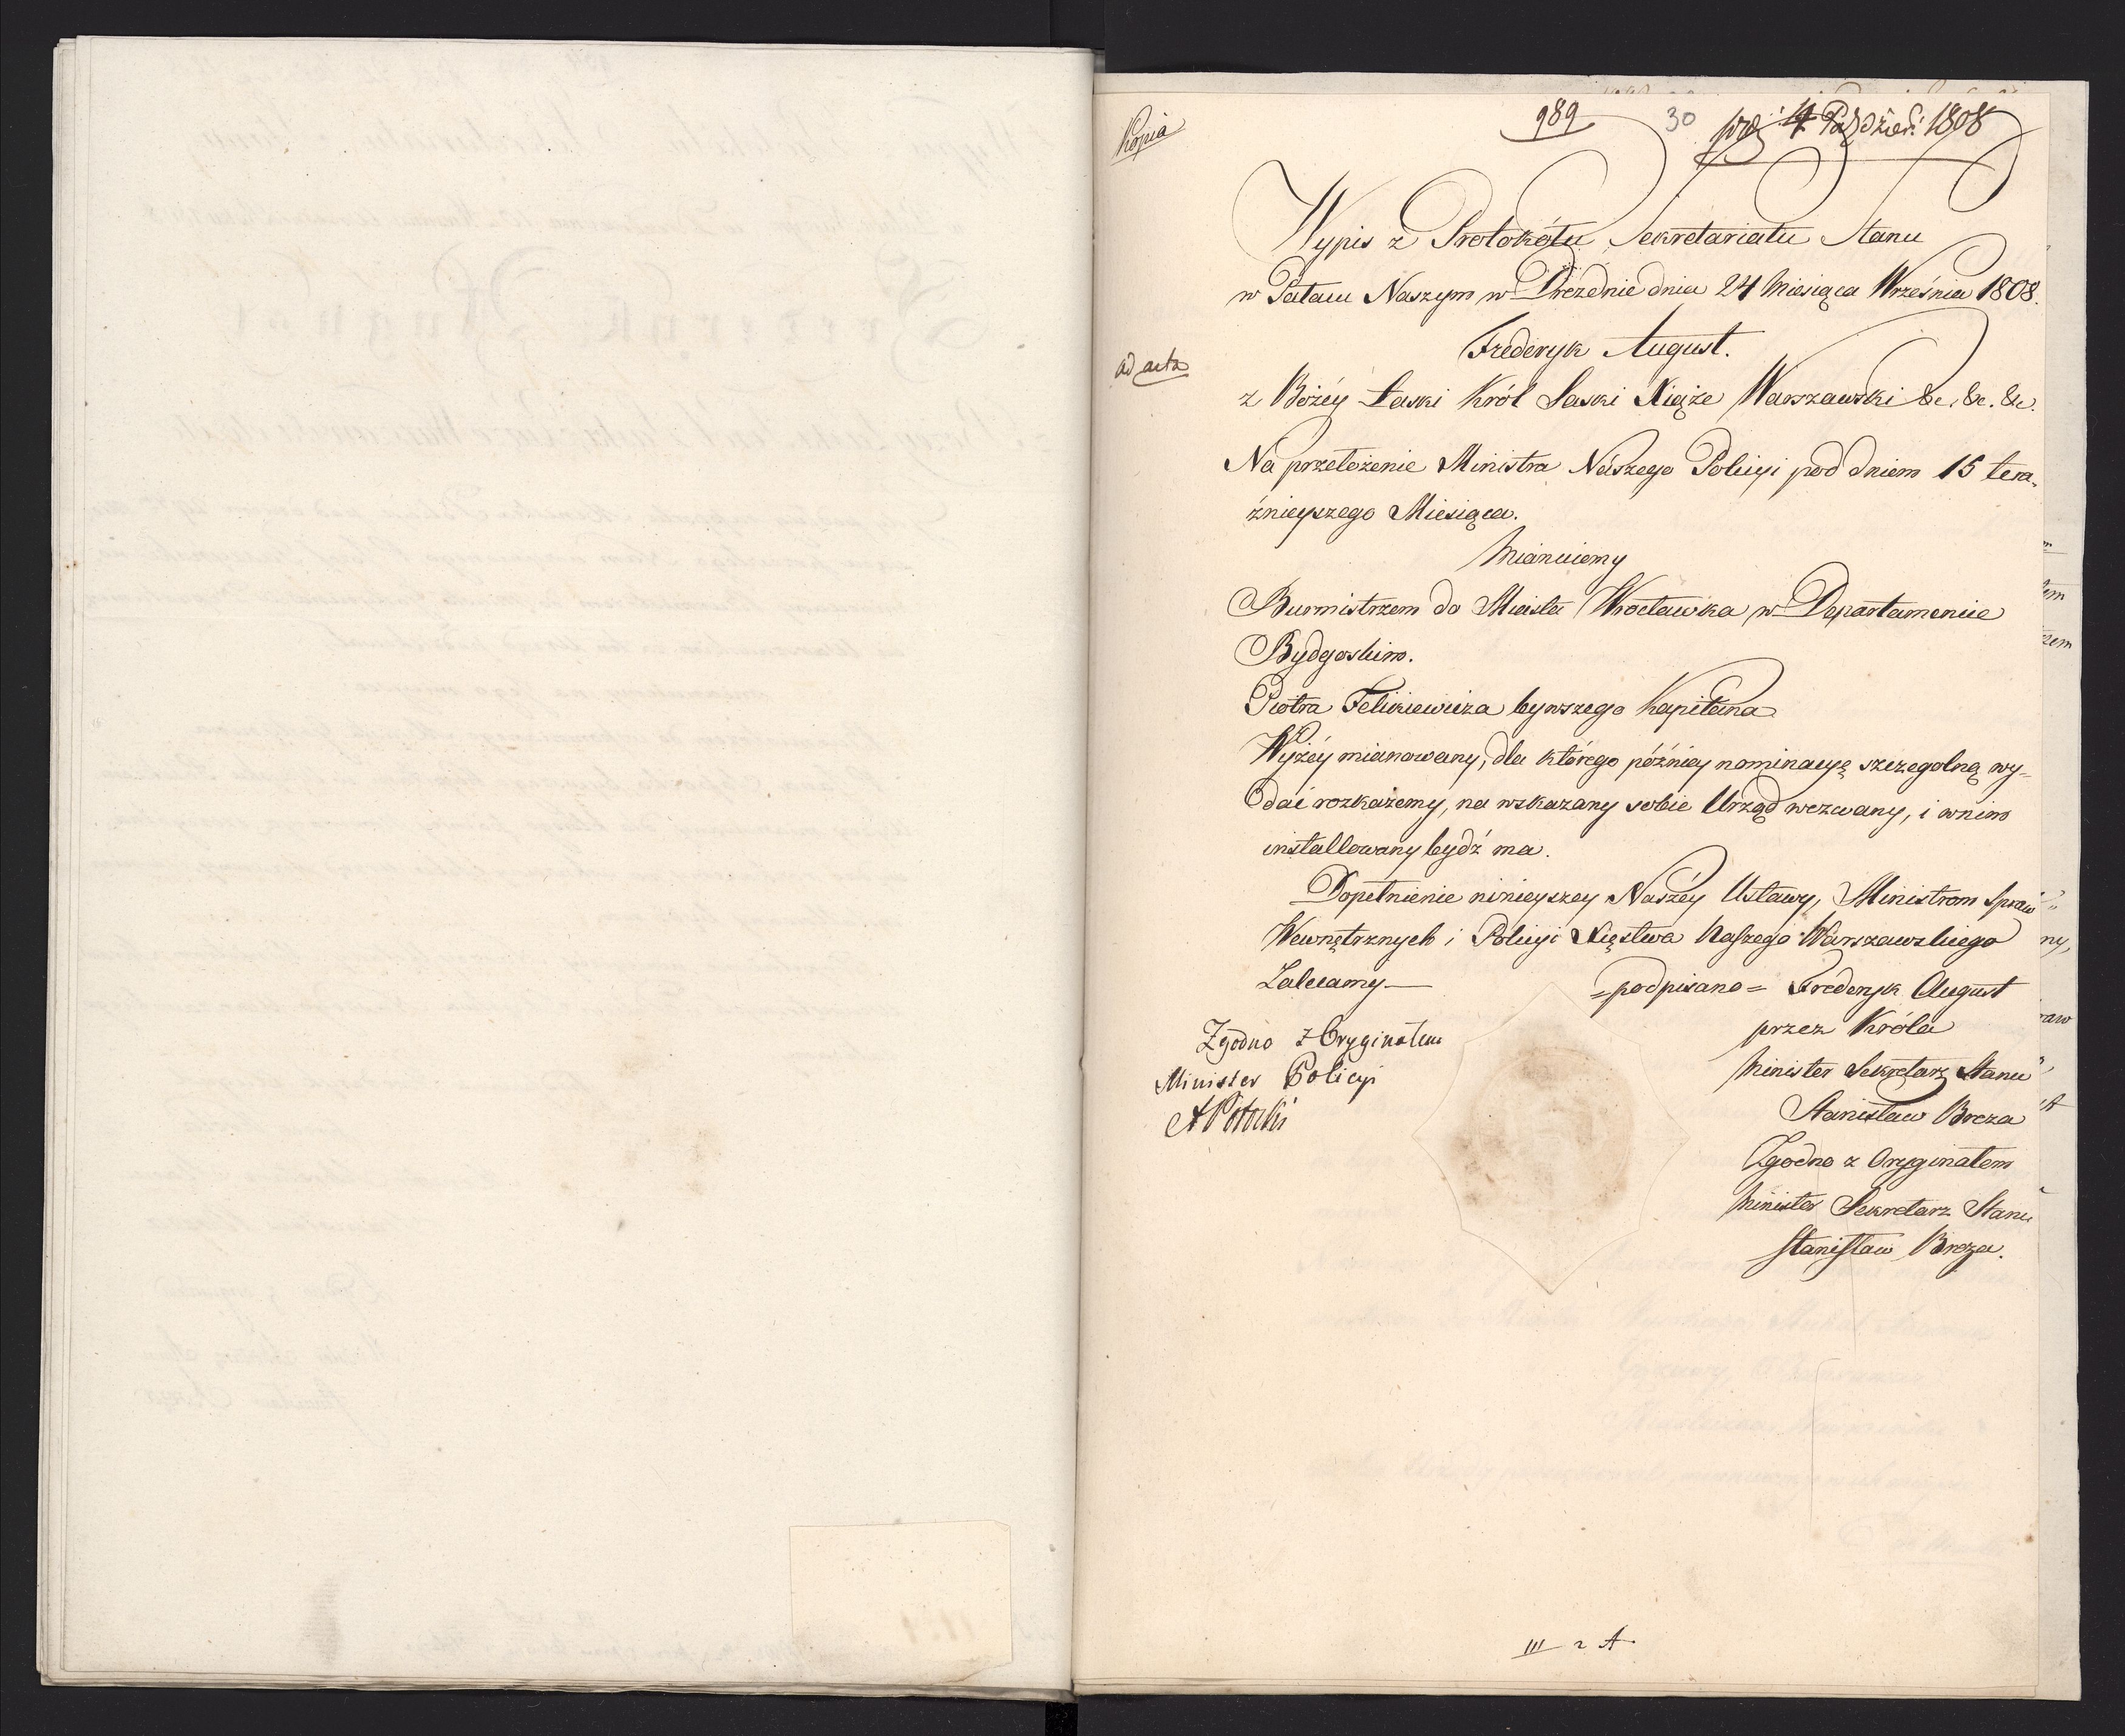 Kopia
989
30
prez: 4 Paździer: 1808
Wypis z Protokółu Sekretariatu Stanu
w Pałacu Naszym w Dreźnie dnia 24 Miesiąca Września 1808.
Frederyk August.
ad acta
z Bożéy Łaski Król Saski Xiąże Warszawski &c. &c. &c.
Na przełożenie Ministra Naszego Policyi pod dniem 15 tera-
źnieyszego Miesiąca.
Mianuiemy
Burmistrzem do Miasta Wrocławka w Departamencie
Bydgoskim.
Piotra Felixiewicza bywszego Kapitana
Wyżéy mianowany, dla którego późniey nominacyą szczegolną wy-
dać rozkażemy, na wskazany sobie Urząd wezwany, i w nim
installowany bydź ma.
Dopełnienie ninieyszey Naszéy Ustawy, Ministrom Spraw
Wewnętrznych i Policyi Xięstwa Naszego Warszawskiego
Zalecamy —
= podpisano = Frederyk August
przez Króla
Minister Sekretarz Stanu
Stanisław Breza
Zgodno z Oryginałem
Minister Policyi
APotocki
Zgodno z Oryginałem
Minister Sekretarz Stanu
Stanisław Breza.
III 2 A.